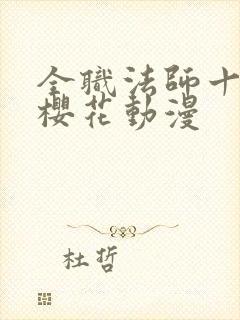 全職法師十
櫻花動漫
杜哲